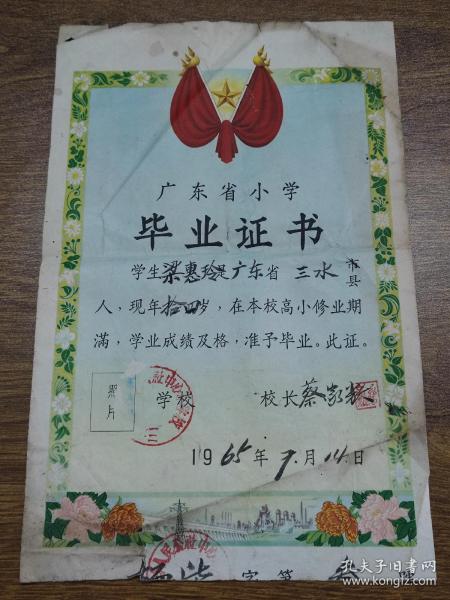 广东省小学
毕业证书
学生梁惠玲是广东省三水市县
人，现年拾四岁，在本校高小修业期
满，学业成绩及格，准予毕业。此证。
照片
学校
校长蔡家
1965年7月14日
字第
孔夫子旧书网
www.kongfz.com